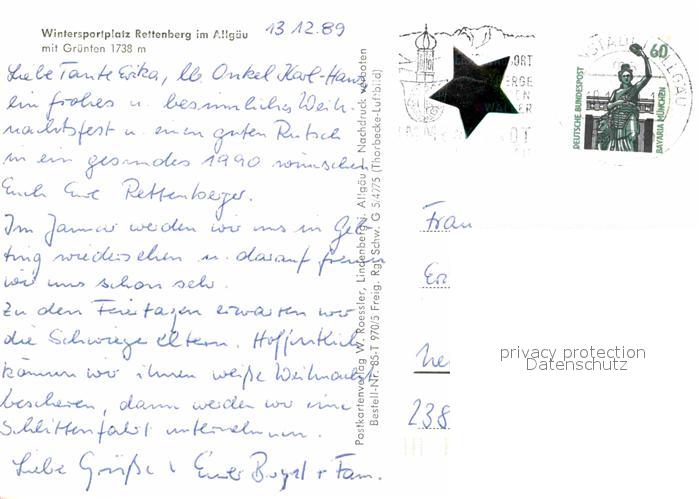 Wintersportplatz Rettenberg im Allgäu
mit Grünten 1738 m
13.12.89
Liebe Tante Erika, lb Onkel Karl-Hans
ein frohes u. besinnliches Weih-
nachtsfest u. einen guten Rutsch
in ein gesundes 1990 wünschen
Euch Eure Rettenberger.
Im Januar werden wir uns in Gel-
ting wiedersehen u. darauf freuen
wir uns schon sehr.
Zu den Feiertagen erwarten wir
die Schwiegereltern. Hoffentlich
können wir ihnen weiße Weihnacht
bescheren, dann werden wir eine
Schlittenfahrt unternehmen.
Liebe Grüße Euer + Fam.
Postkartenverlag W. Roessler, Lindenberg i. Allgäu Nachdruck verboten
Bestell-Nr. 85-T 970/5 Freig. Rgt Schw. G 5/4775 (Thorbecke-Luftbild)
60
DEUTSCHE BUNDESPOST
BAVARIA MÜNCHEN
Frau
238
privacy protection
Datenschutz